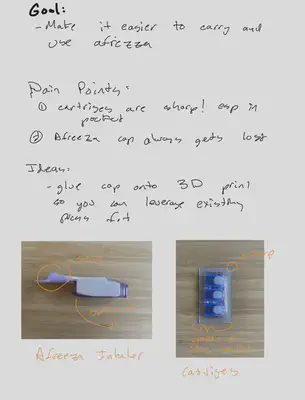 Goal:
- Make it easier to carry and
use afrezza
Pain Points:
① cartriges are sharp! esp in
pocket
② Afreeza cap always gets lost
Ideas:
- glue cap onto 3D print
so you can leverage existing
press fit
Afreeza Inhaler
Cartriges